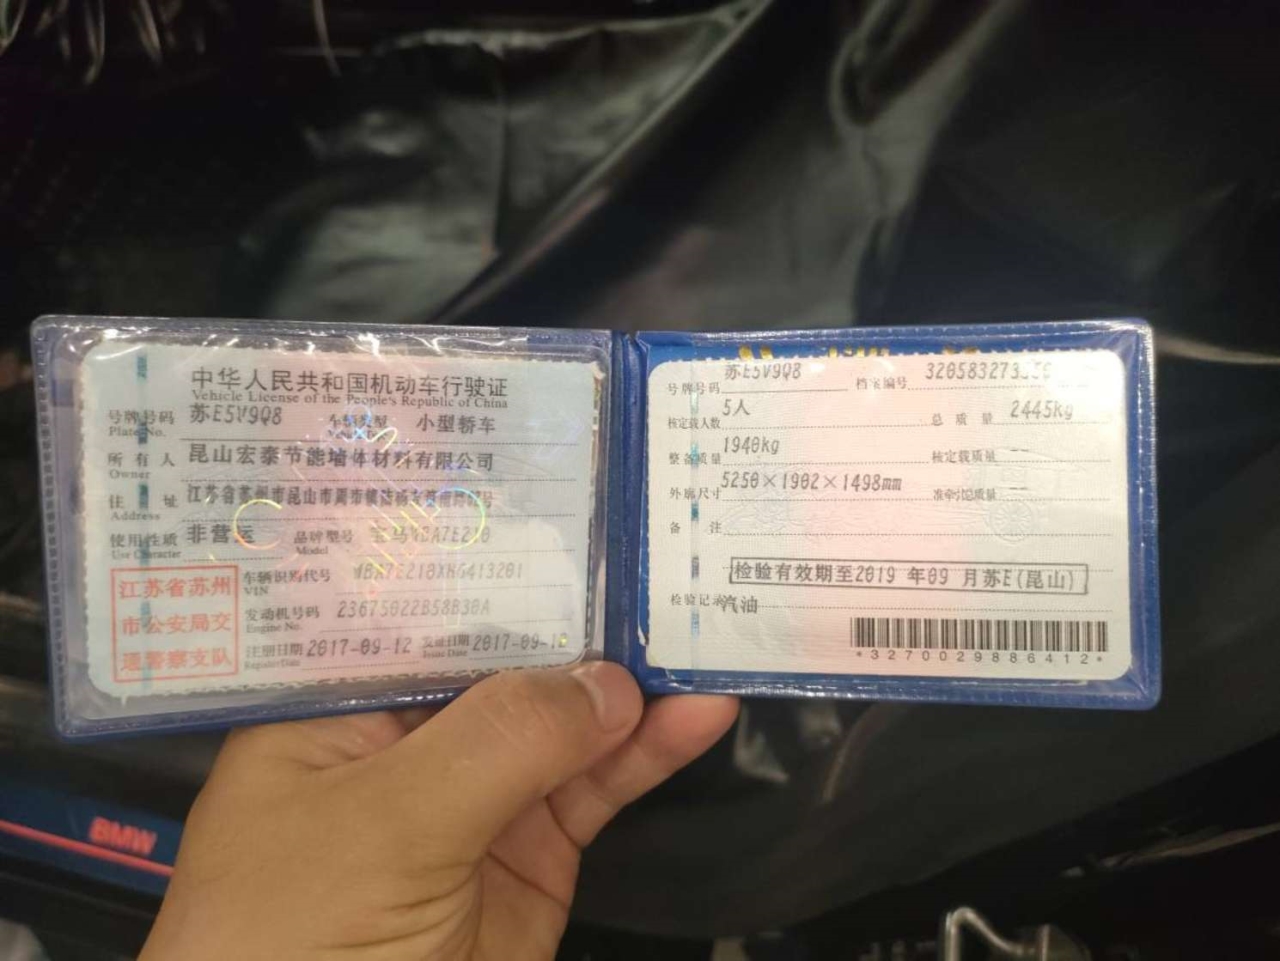 中华人民共和国机动车行驶证
Vehicle License of the People's Republic of China
号牌号码 苏E5V9Q8 车辆类型 小型轿车
Plate No.
所有人 昆山宏泰节能墙体材料有限公司
Owner
住址 江苏省苏州市昆山市周市镇
Address
使用性质 非营运 品牌型号 宝马WBA7E210
Use Character Model
江苏省苏州
市公安局交
通警察支队
车辆识别代号
VIN
发动机号码 23675022B58B30A
Engine No.
注册日期 2017-09-12 发证日期 2017-09-1
Register Date Issue Date
号牌号码 苏E5V9Q8 档案编号 320583273
核定载人数 5人 总质量 2445kg
整备质量 1940kg 核定载质量 --
外廓尺寸 5250×1902×1498mm 准牵引总质量 --
备注
检验有效期至2019年09月苏E(昆山)
检验记录 汽油
*3270029886412*
BMW